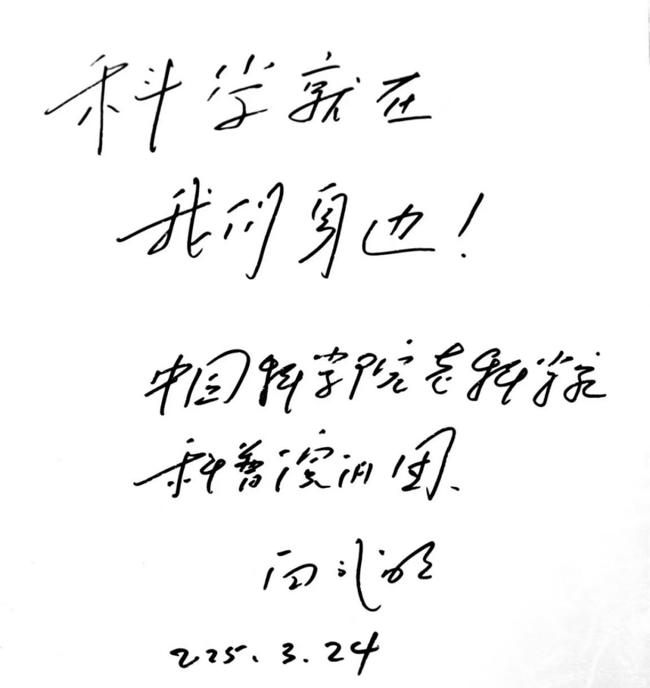 科学就在
我们身边！
中国科学院老科学家
科普演讲团、
白武明
2025.3.24